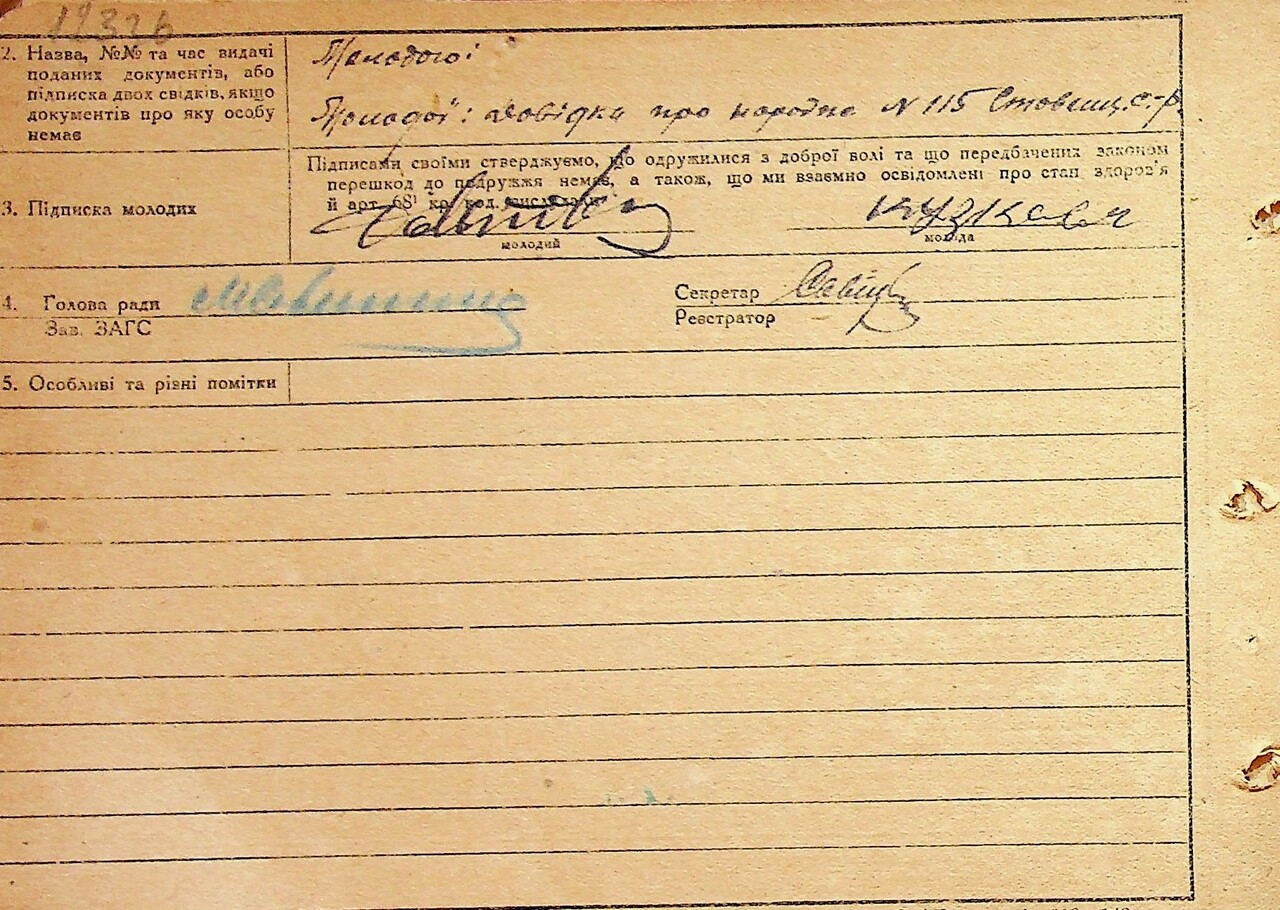 12326
2. Назва, №№ та час видачі
поданих документів, або
підписка двох свідків, якщо
документів про яку особу
немає
Молодого:
Молодої: Довідка про народже N 115 Ставищ. с-р.
3. Підписка молодих
Підписами своїми стверджуємо, що одружилися з доброї волі та що передбачених законом
перешкод до подружжя немає, а також, що ми взаємно освідомлені про стан здоров'я
й арт. 68¹ кр. код.
молодий
молода
4. Голова ради
Зав. ЗАГС
Секретар
Реєстратор
5. Особливі та різні помітки